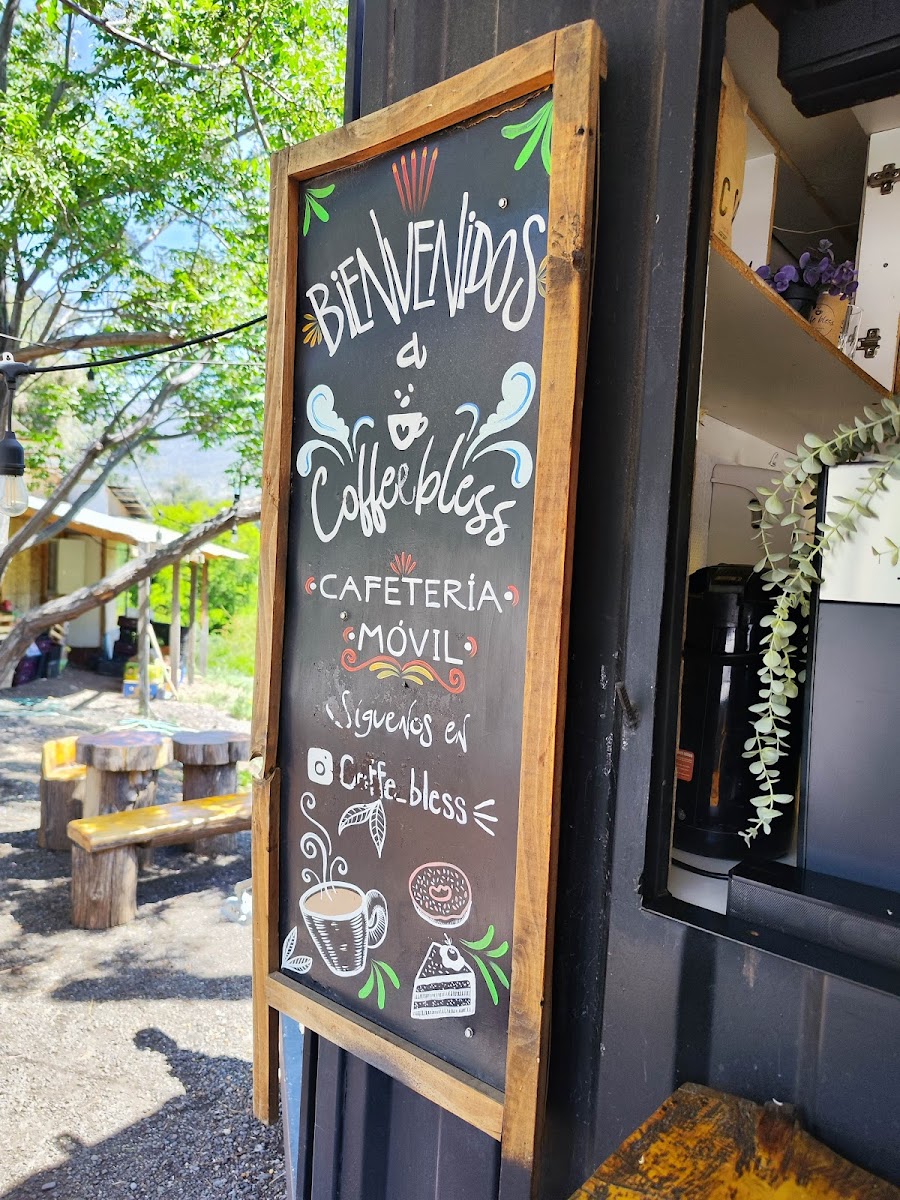 BiENVENiDOS
a
Coffee bless
CAFETERÍA
MÓVIL
Síguenos en
Coffe_bless